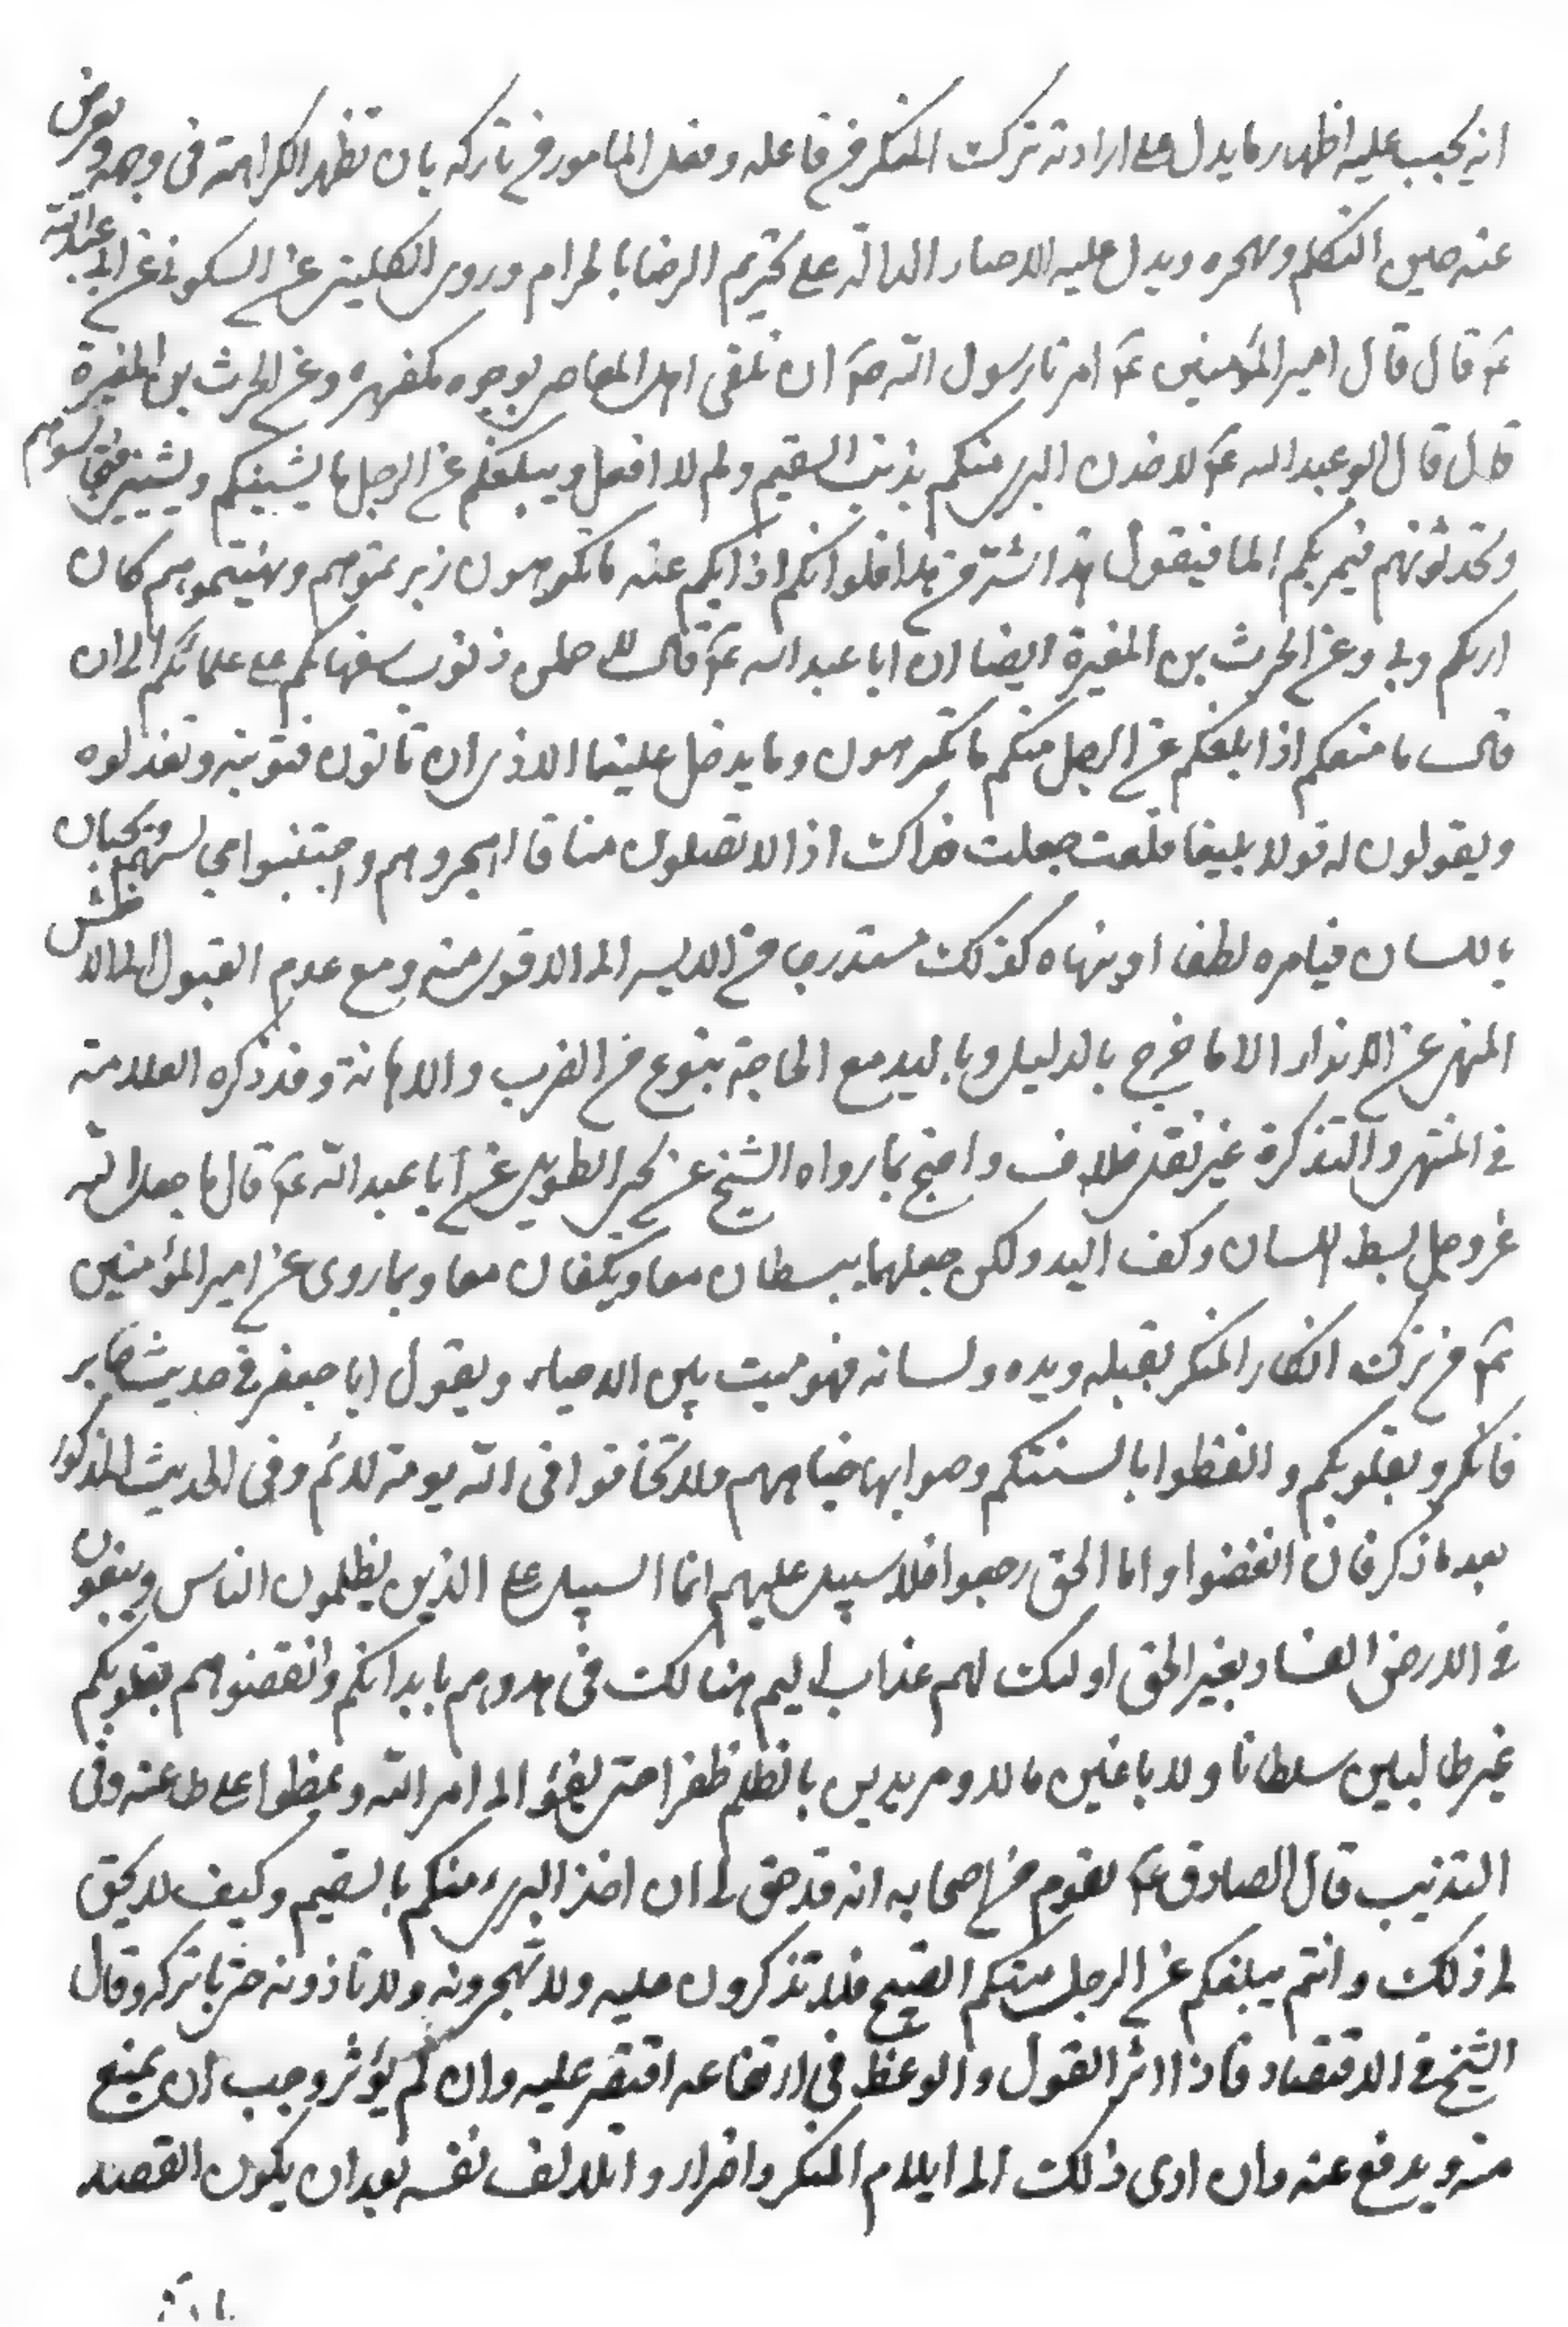 انه يجب عليه اظهار ما يدل على ارادته تركت المنكر من فاعله وفعل المامور من تاركه بان تظهر الكراهة فى وجهه ويعرض
عنه حين التكلم ويهجره ويدل عليه الاخبار الدالة على تحريم الرضا بالحرام وروى الكلينى عن السكونى عن ابى عبد الله
عم قال قال امير المؤمنين عم امرنا رسول الله ص ان نلقى اهل المعاصى بوجوه مكفهره وعن الحرث بن المغيرة
قال قال ابو عبد الله عم لاخذن البرى منكم بذنب السقيم ولم لا افعل ويبلغكم عن الرجل ما يشينكم ويشيننى فتجالسونهم
وتحدثونهم فيمر بكم المار فيقول هذا اشر من هذا فلو انكم اذا بلغكم عنه ما تكرهون زبرتموهم ونهيتموهم كان
ابر بكم وبى وعن الحرث بن المغيرة ايضا ان ابا عبد الله عم قال له حملن ذنوب سفهائكم على علمائكم الى ان
قال ما منعكم اذا بلغكم عن الرجل منكم ما تكرهون وما يدخل علينا الاذى ان تاتون فتونبه وتعذلوه
ويقولون له قولا بليغا فقلت جعلت فداك اذا لا تقبلون منا قال اهجروهم واجتنبوا مجالسهم ويجبان
باللسان فيامره لطفا او ينهاه كذلك مستدرجا من الايسر الى الاقوى منه ومع عدم القبول الى الاخشن
المنهى عن الانذار الا ما خرج بالدليل وباليد مع الحاجة بنوع من الضرب والاهانة وقد ذكره العلامة
فى المنتهى والتذكرة غير نقل خلاف واحتج بما رواه الشيخ عن يحيى الطويل عن ابا عبد الله عم قال ما جعل الله
عز وجل بسط اللسان وكف اليد ولكن جعلهما يبسطان معا ويكفان معا وبما روى عن امير المؤمنين
عم من تركت انكار المنكر بقلبه ويده ولسانه فهو ميت بين الاحياء ويقول ابا جعفر فى حديث جابر
فانكرو بقلوبكم والفظوا بالسنتكم وصوابها جباههم ولا تخافوا فى الله يومة لائم وفى الحديث المذكور
بعد ما ذكر فان اتعضوا واما الحق رجعوا فلا سبيل عليهم انما السبيل على الذين يظلمون الناس ويبغون
فى الارض الفساد بغير الحق اولئك لهم عذاب اليم هنالك فجاهدوهم بابدانكم وابغضوهم بقلوبكم
غير طالبين سلطانا ولا باغين مالا ومريدين بالظلم ظفرا حتى يفيئوا الى امر الله ويمضوا على طاعته وفى
التهذيب قال الصادق عم لقوم من اصحابه انه قد حق لى ان اخذ البرى منكم بالسقيم وكيف لا يحق
لى ذلك وانتم يبلغكم عن الرجل منكم القبيح فلا تنكرون عليه ولا تهجرونه ولا تاذونه حتى يتركه وقال
الشيخ فى الاقتصاد فاذا اثر القول والوعظ فى ارتفاعه اقتصر عليه وان لم يؤثر وجب ان يمنع
منه ويدفع عنه وان ادى ذلك الى ايلام المنكر واضرار واتلاف نفسه بعد ان يكون القصد